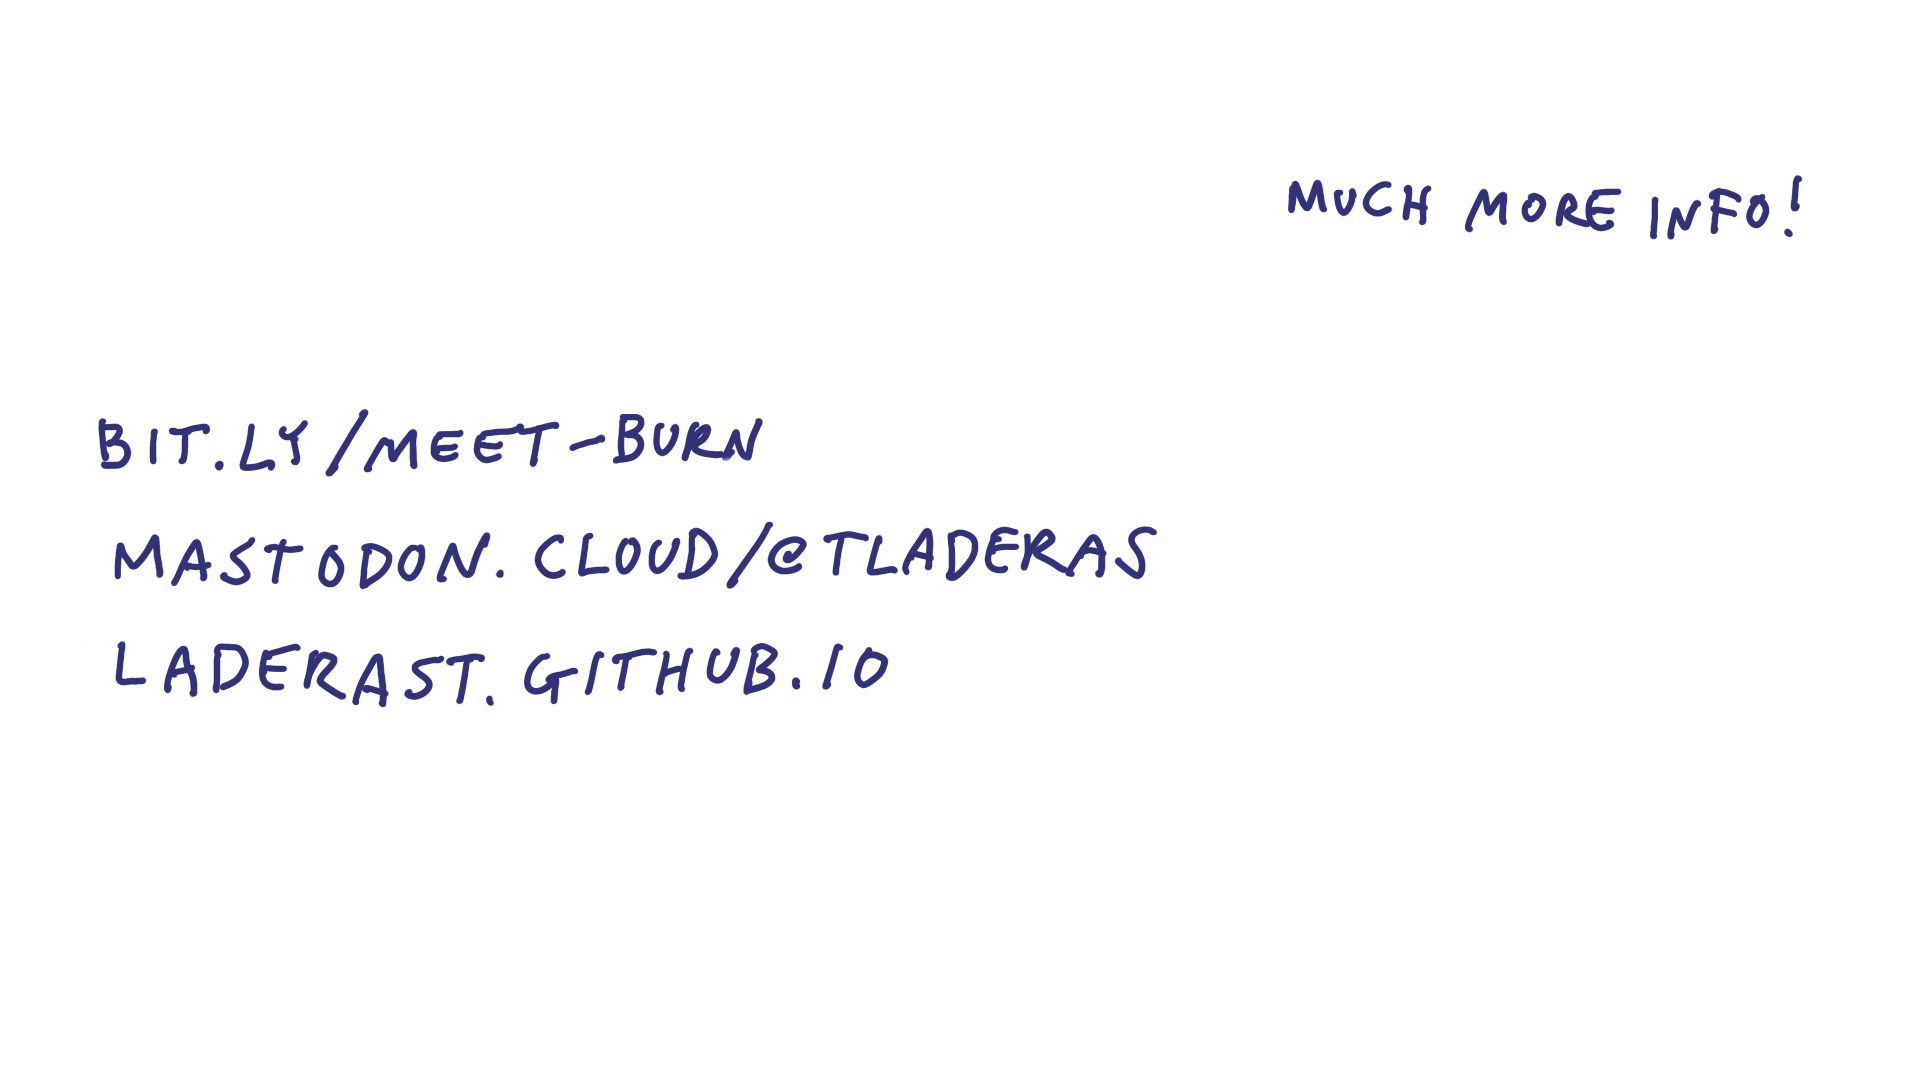 MUCH MORE INFO!
BIT.LY/MEET-BURN
MASTODON.CLOUD/@TLADERAS
LADERAST.GITHUB.IO